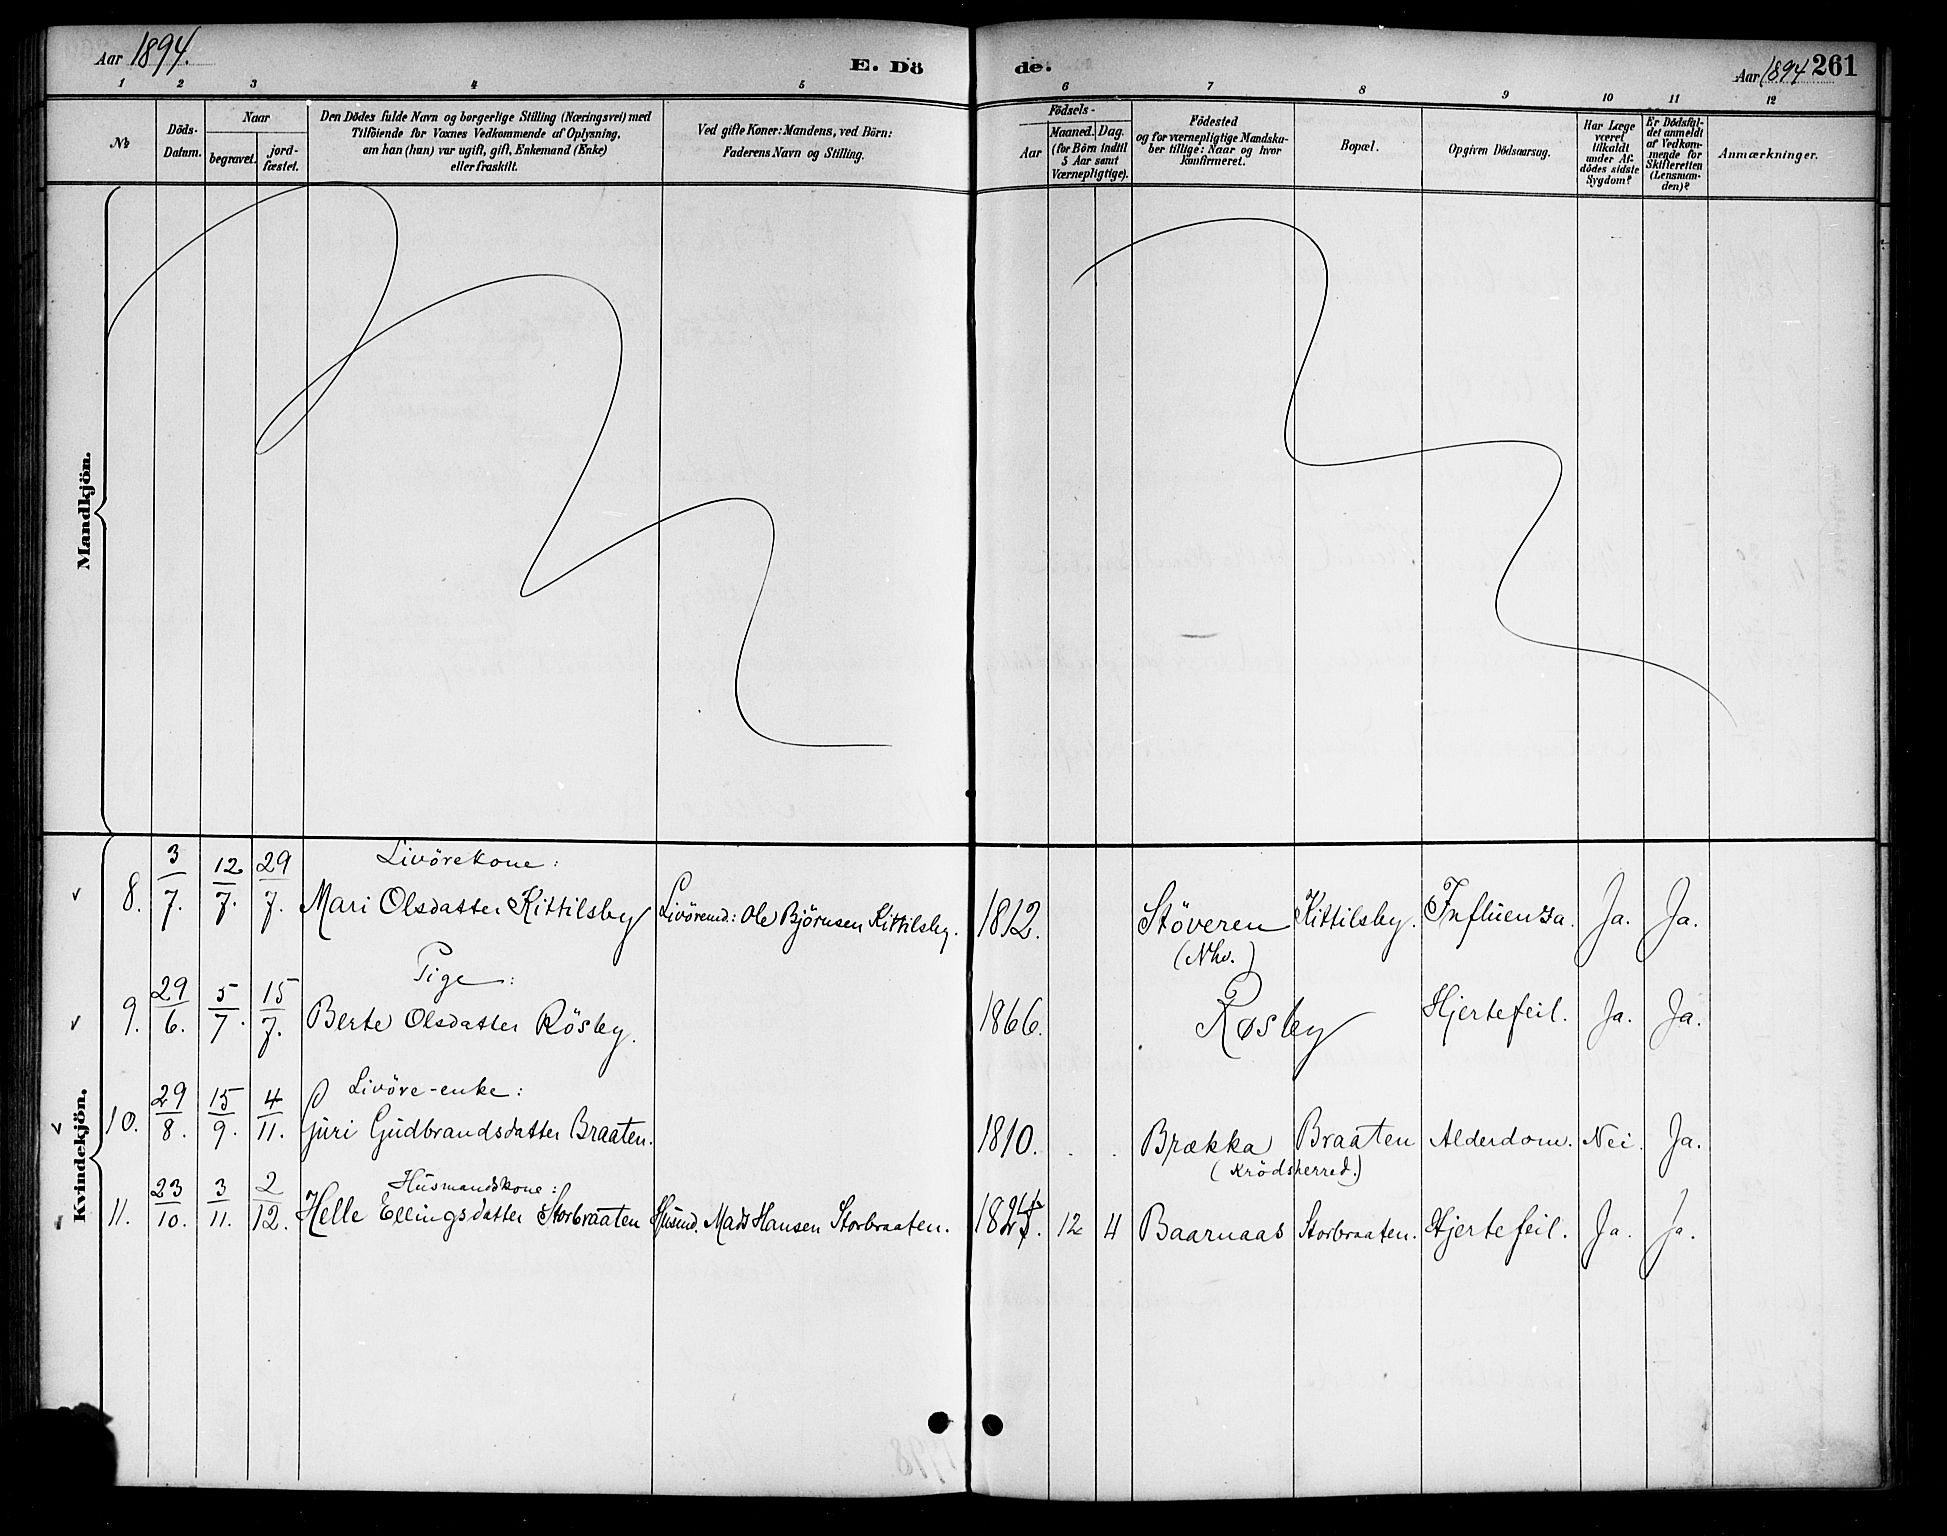 Aar 1894. E. Dö de. Aar 1894 261
1 2 3 4 5 6 7 8 9 10 11 12
№
Döds-Datum.
Naar
begravet.
jord-fæstet.
Den Dödes fulde Navn og borgerlige Stilling (Næringsvei) med
Tilföiende for Voxnes Vedkommende af Oplysning,
om han (hun) var ugift, gift, Enkemand (Enke)
eller fraskilt.
Ved gifte Koner: Mandens, ved Börn:
Faderens Navn og Stilling.
Födsels-
Aar
Maaned. Dag.
(for Börn indtil
5 Aar samt
Værnepligtige).
Födested
og for værnepligtige Mandska-
ber tillige: Naar og hvor
konfirmeret.
Bopæl.
Opgiven Dödsaarsag.
Har Læge
været
tilkaldt
under Af-
dödes sidste
Sygdom?
Er Dödsfal-
det anmeldt
af Vedkom-
mende for
Skifteretten
(Lensman-
den)?
Anmærkninger.
Mandkjön.
Kvindekjön.
Livörekone:
8. 3/7. 12/7. 29/7. Mari Olsdatter Kittilsby Livöremd: Ole Björnsen Kittilsby. 1812. Stöveren Kittilsby. Influenza. Ja. Ja.
(Nho.)
Pige:
9. 29/6. 5/7. 15/7. Berte Olsdatter Rösby. 1866. Røsby Hjertefeil. Ja. Ja.
Livöre-enke:
10. 29/8. 15/9. 4/11. Guri Gudbrandsdatter Braaten. 1810. . . Brækka Braaten Alderdom. Nei. Ja.
(Krödsherred.)
Husmandskone:
11. 23/10. 3/11. 2/12. Helle Ellingsdatter Storbraaten Husmd. Mads Hansen Storbraaten. 12 4 Baarnaas Storbraaten. Hjertefeil. Ja. Ja.